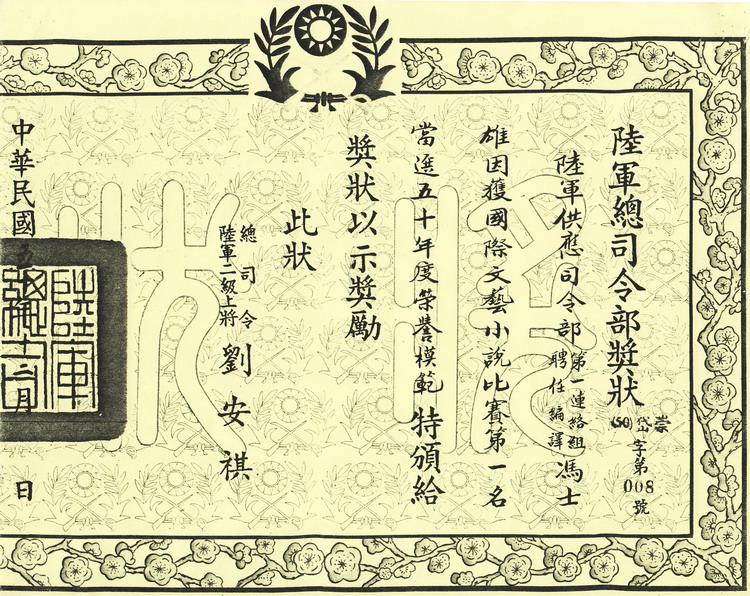 陸軍總司令部獎狀
(50)崇岱字第008號
陸軍供應司令部第一連絡組聘任編譯馮士
雄因獲國際文藝小說比賽第一名
當選五十年度榮譽模範特頒給
獎狀以示獎勵
此狀
總司令
陸軍二級上將
劉安祺
中華民國五十二月 日